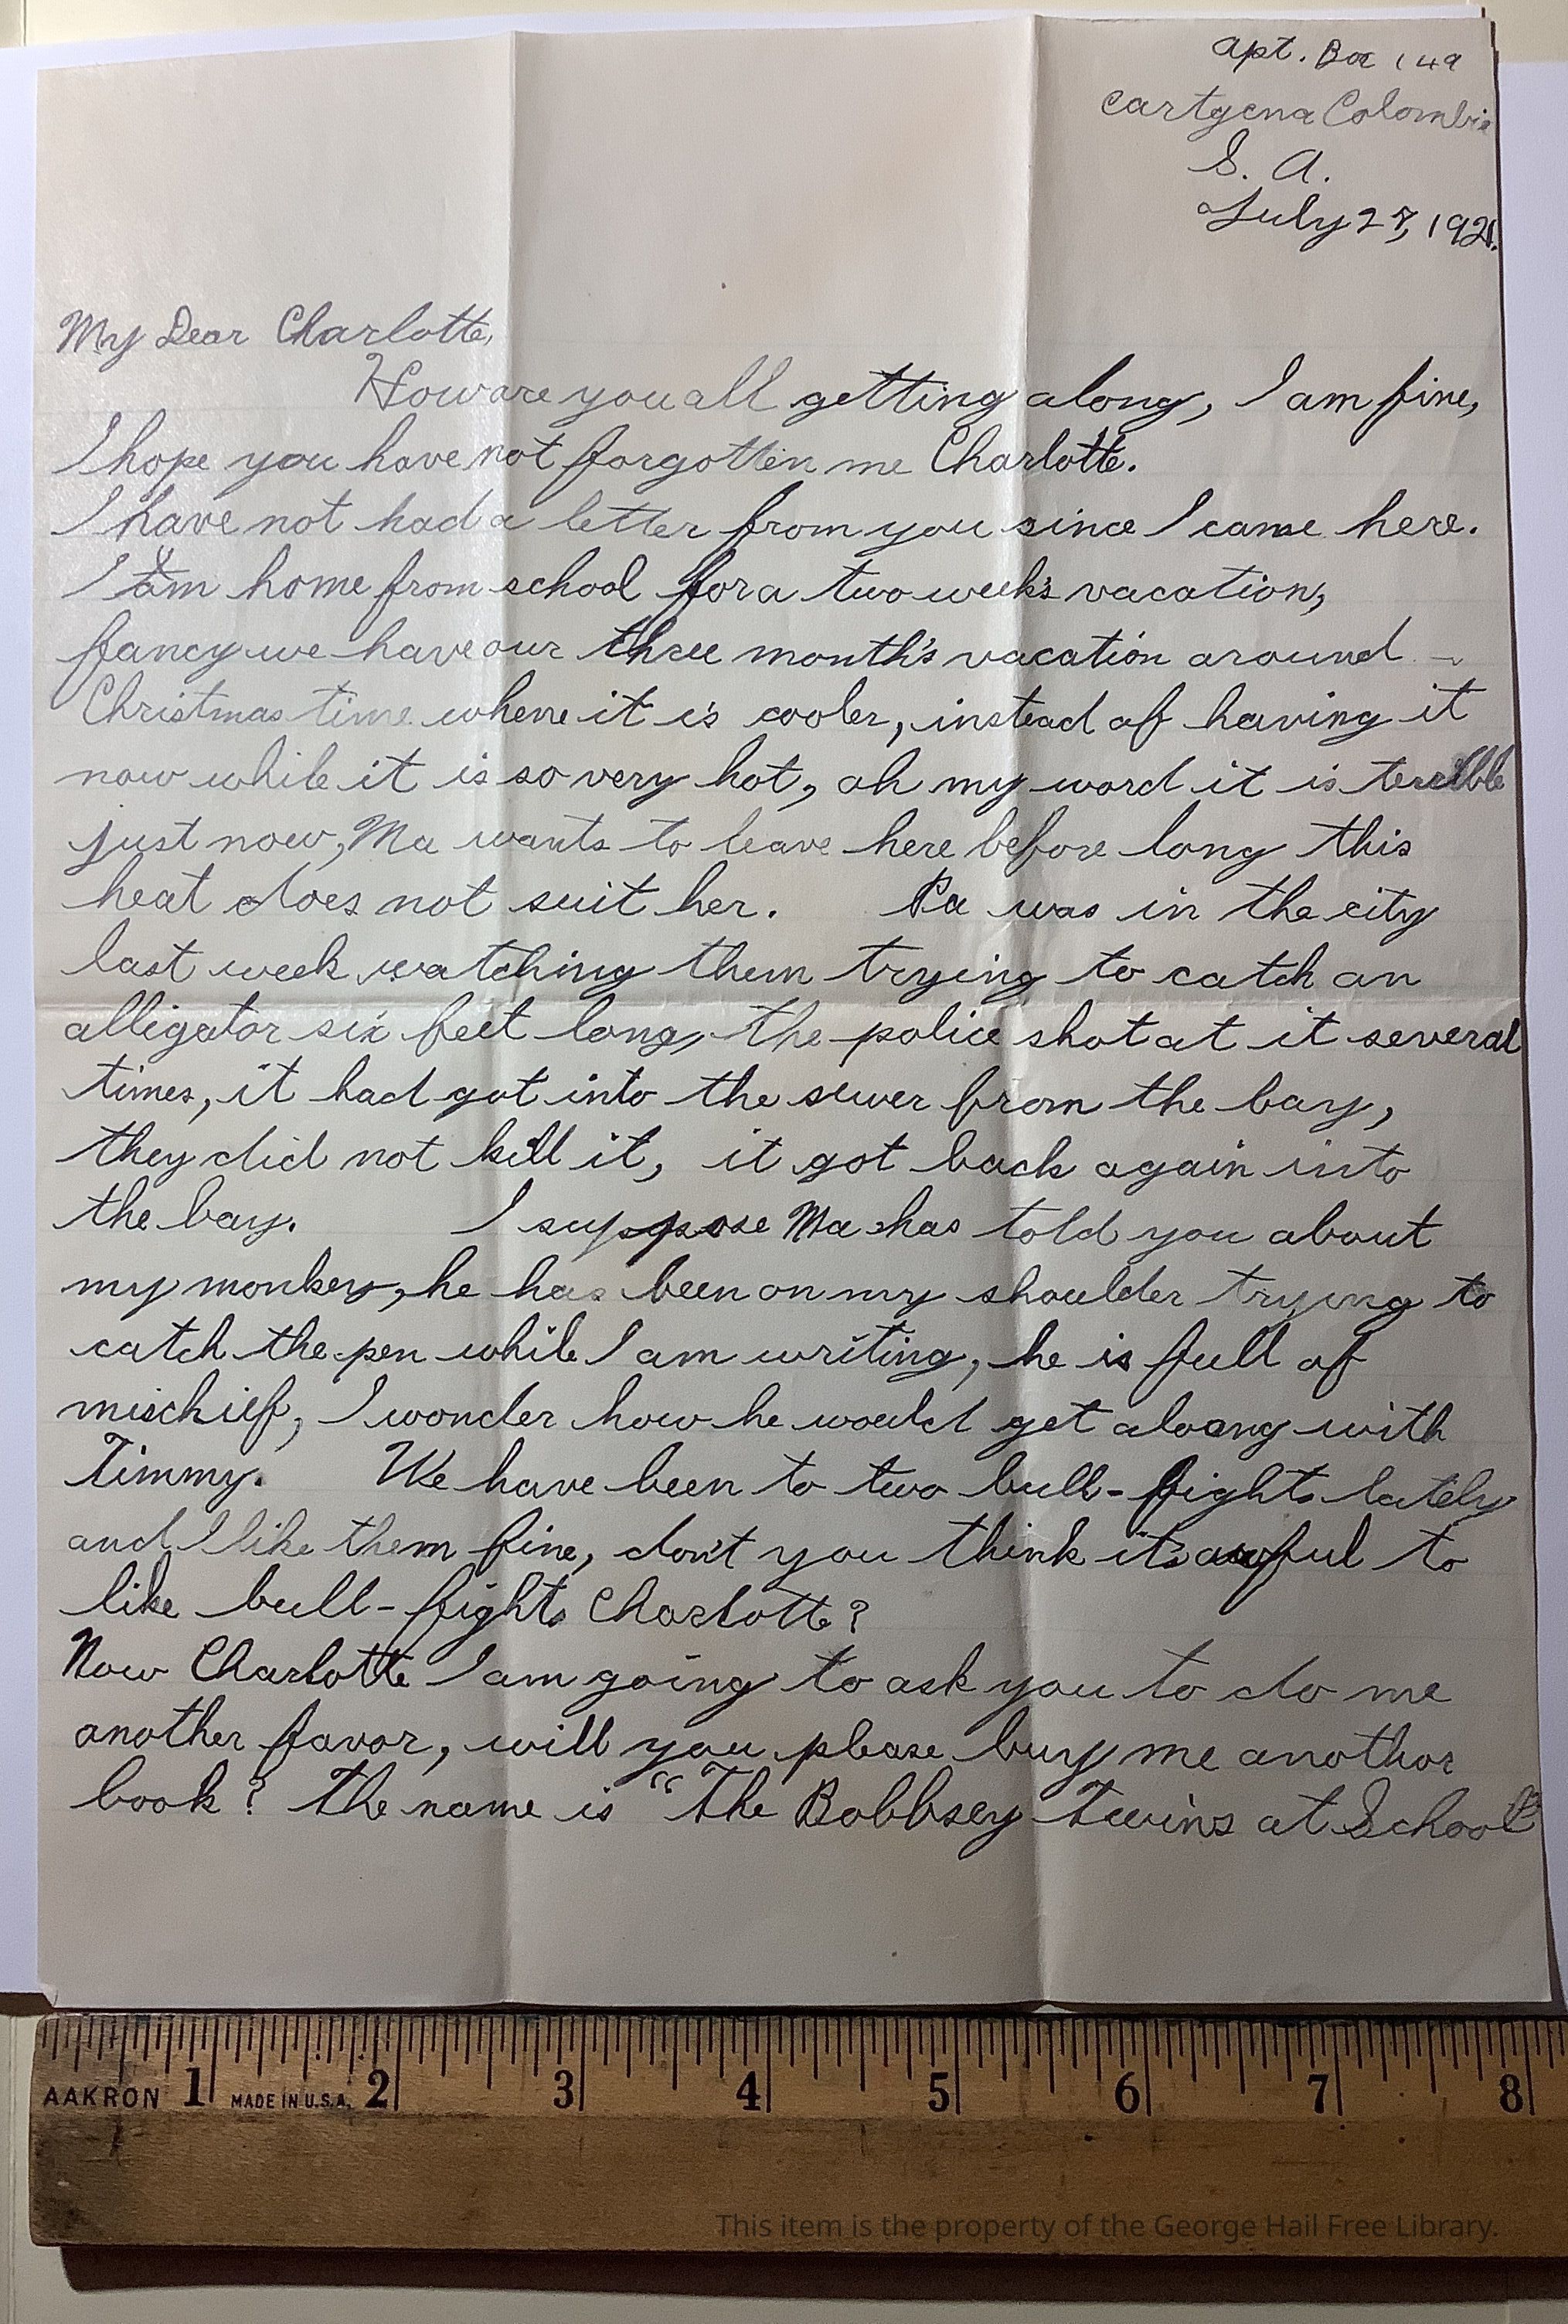 Apt. Box 149
Cartgena Colombia
S. A.
July 27, 192
My Dear Charlotte,
How are you all getting along, I am fine,
I hope you have not forgotten me Charlotte.
I have not had a letter from you since I came here.
I am home from school for a two week's vacation,
fancy we have our three month's vacation around
Christmas time where it is cooler, instead of having it
now while it is so very hot, oh my word it is terrible
just now, Ma wants to leave here before long this
heat does not suit her. Pa was in the city
last week watching them trying to catch an
alligator six feet long, the police shot at it several
times, it had got into the sewer from the bay,
they did not kill it, it got back again into
the bay. I suppose Ma has told you about
my monkey, he has been on my shoulder trying to
catch the pen while I am writing, he is full of
mischief, I wonder how he would get aloong with
Timmy. We have been to two bull-fights lately
and I like them fine, don't you think it's awful to
like bull-fights Charlotte?
Now Charlotte I am going to ask you to do me
another favor, will you please buy me another
book? The name is "The Bobbsey Twins at School"
AAKRON 1 MADE IN U.S.A. 2 3 4 5 6 7 8
This item is the property of the George Hail Free Library.